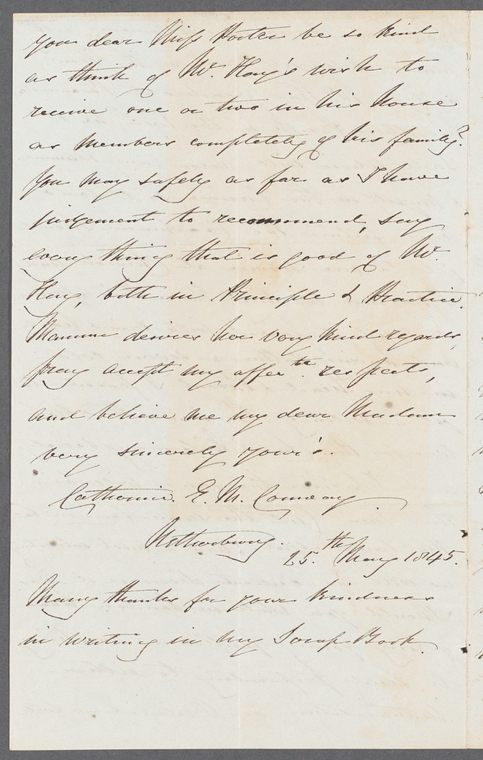 you dear Miss Porter be so kind
as think of Mr. Hay's wish to
receive one or two in his House
as members completely of his family?
You may safely as far as I have
judgement to recommend, say
every thing that is good of Mr.
Hay, both in Principle & Practice.
Mamma desires her very kind regards,
pray accept my affecte. respects,
and believe me my dear Madam
very sincerely your's.
Catherine E. M.
25.th May 1845.
Many thanks for your kindness
in writing in my Scrap Book.